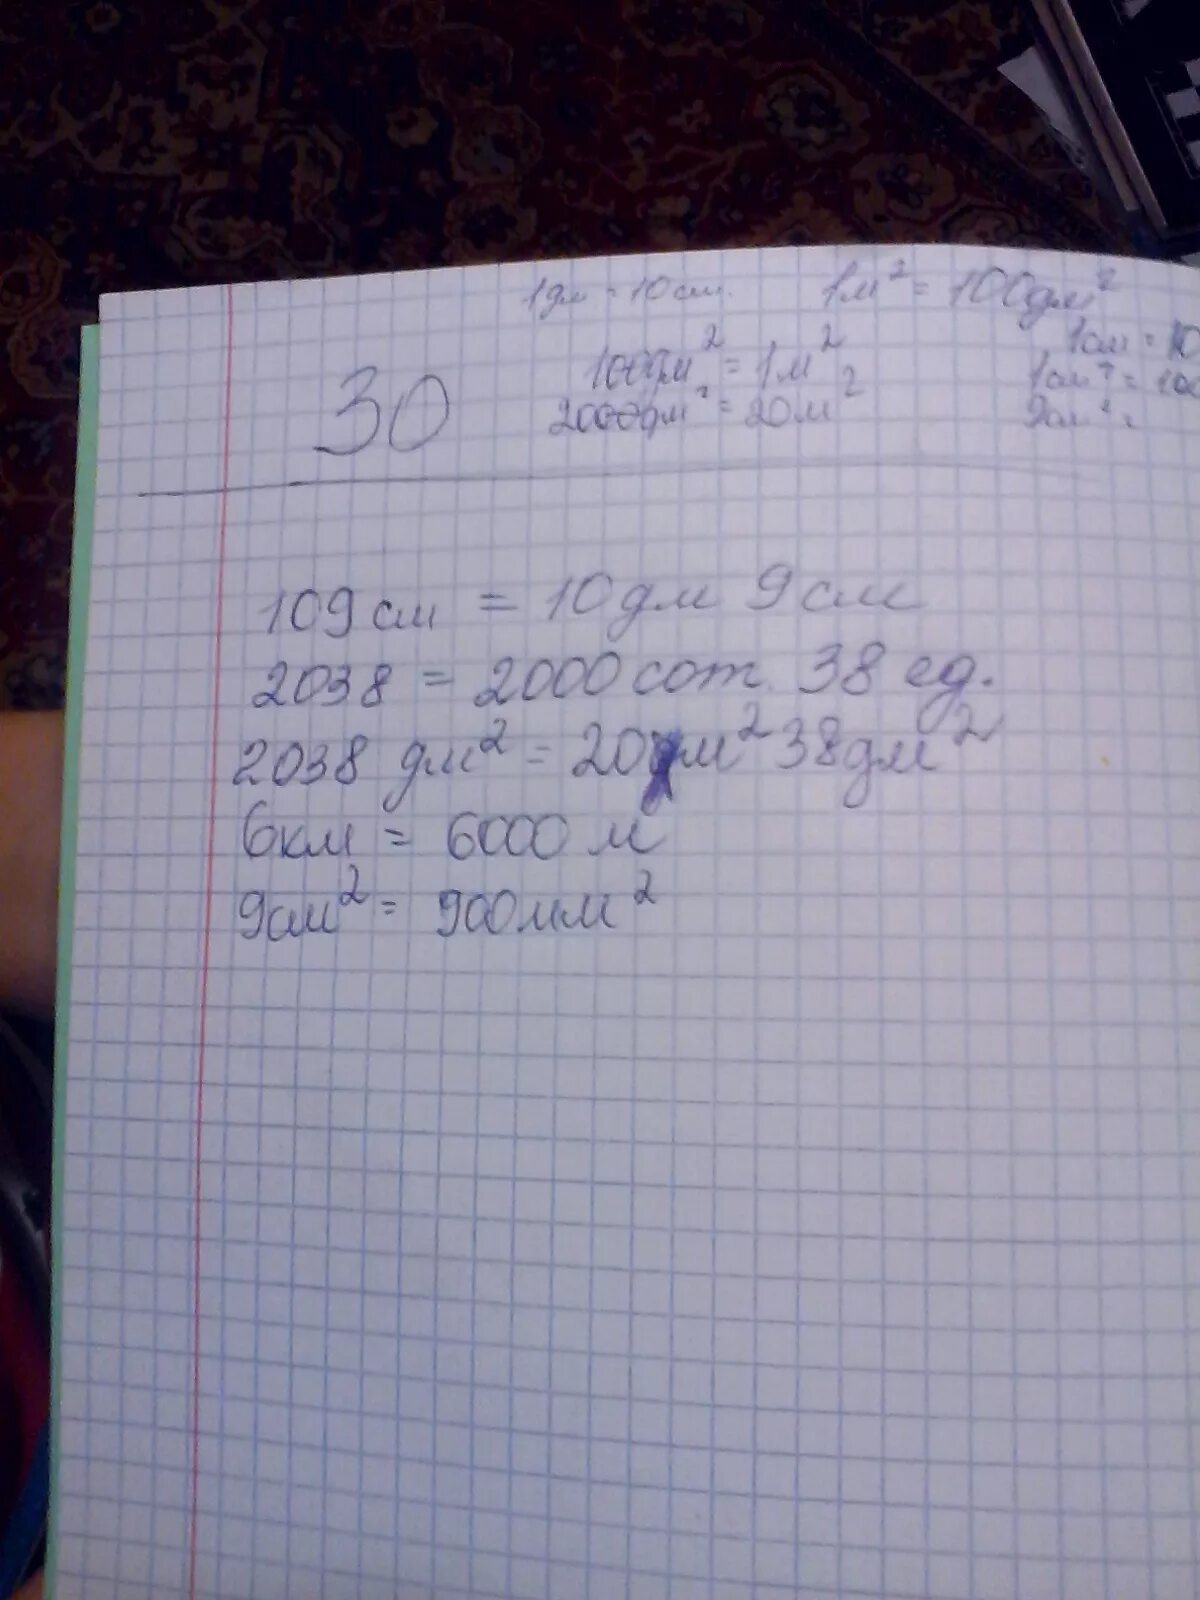 1дм = 10см. 1м² = 100дм²
1см = 10
100дм² = 1м²
1см² = 100
2000дм² = 20м²
9см² =
30
109см = 10дм 9см
2038 = 2000сот. 38 ед.
2038 дм² = 20м² 38дм²
6км = 6000м
9см² = 900мм²